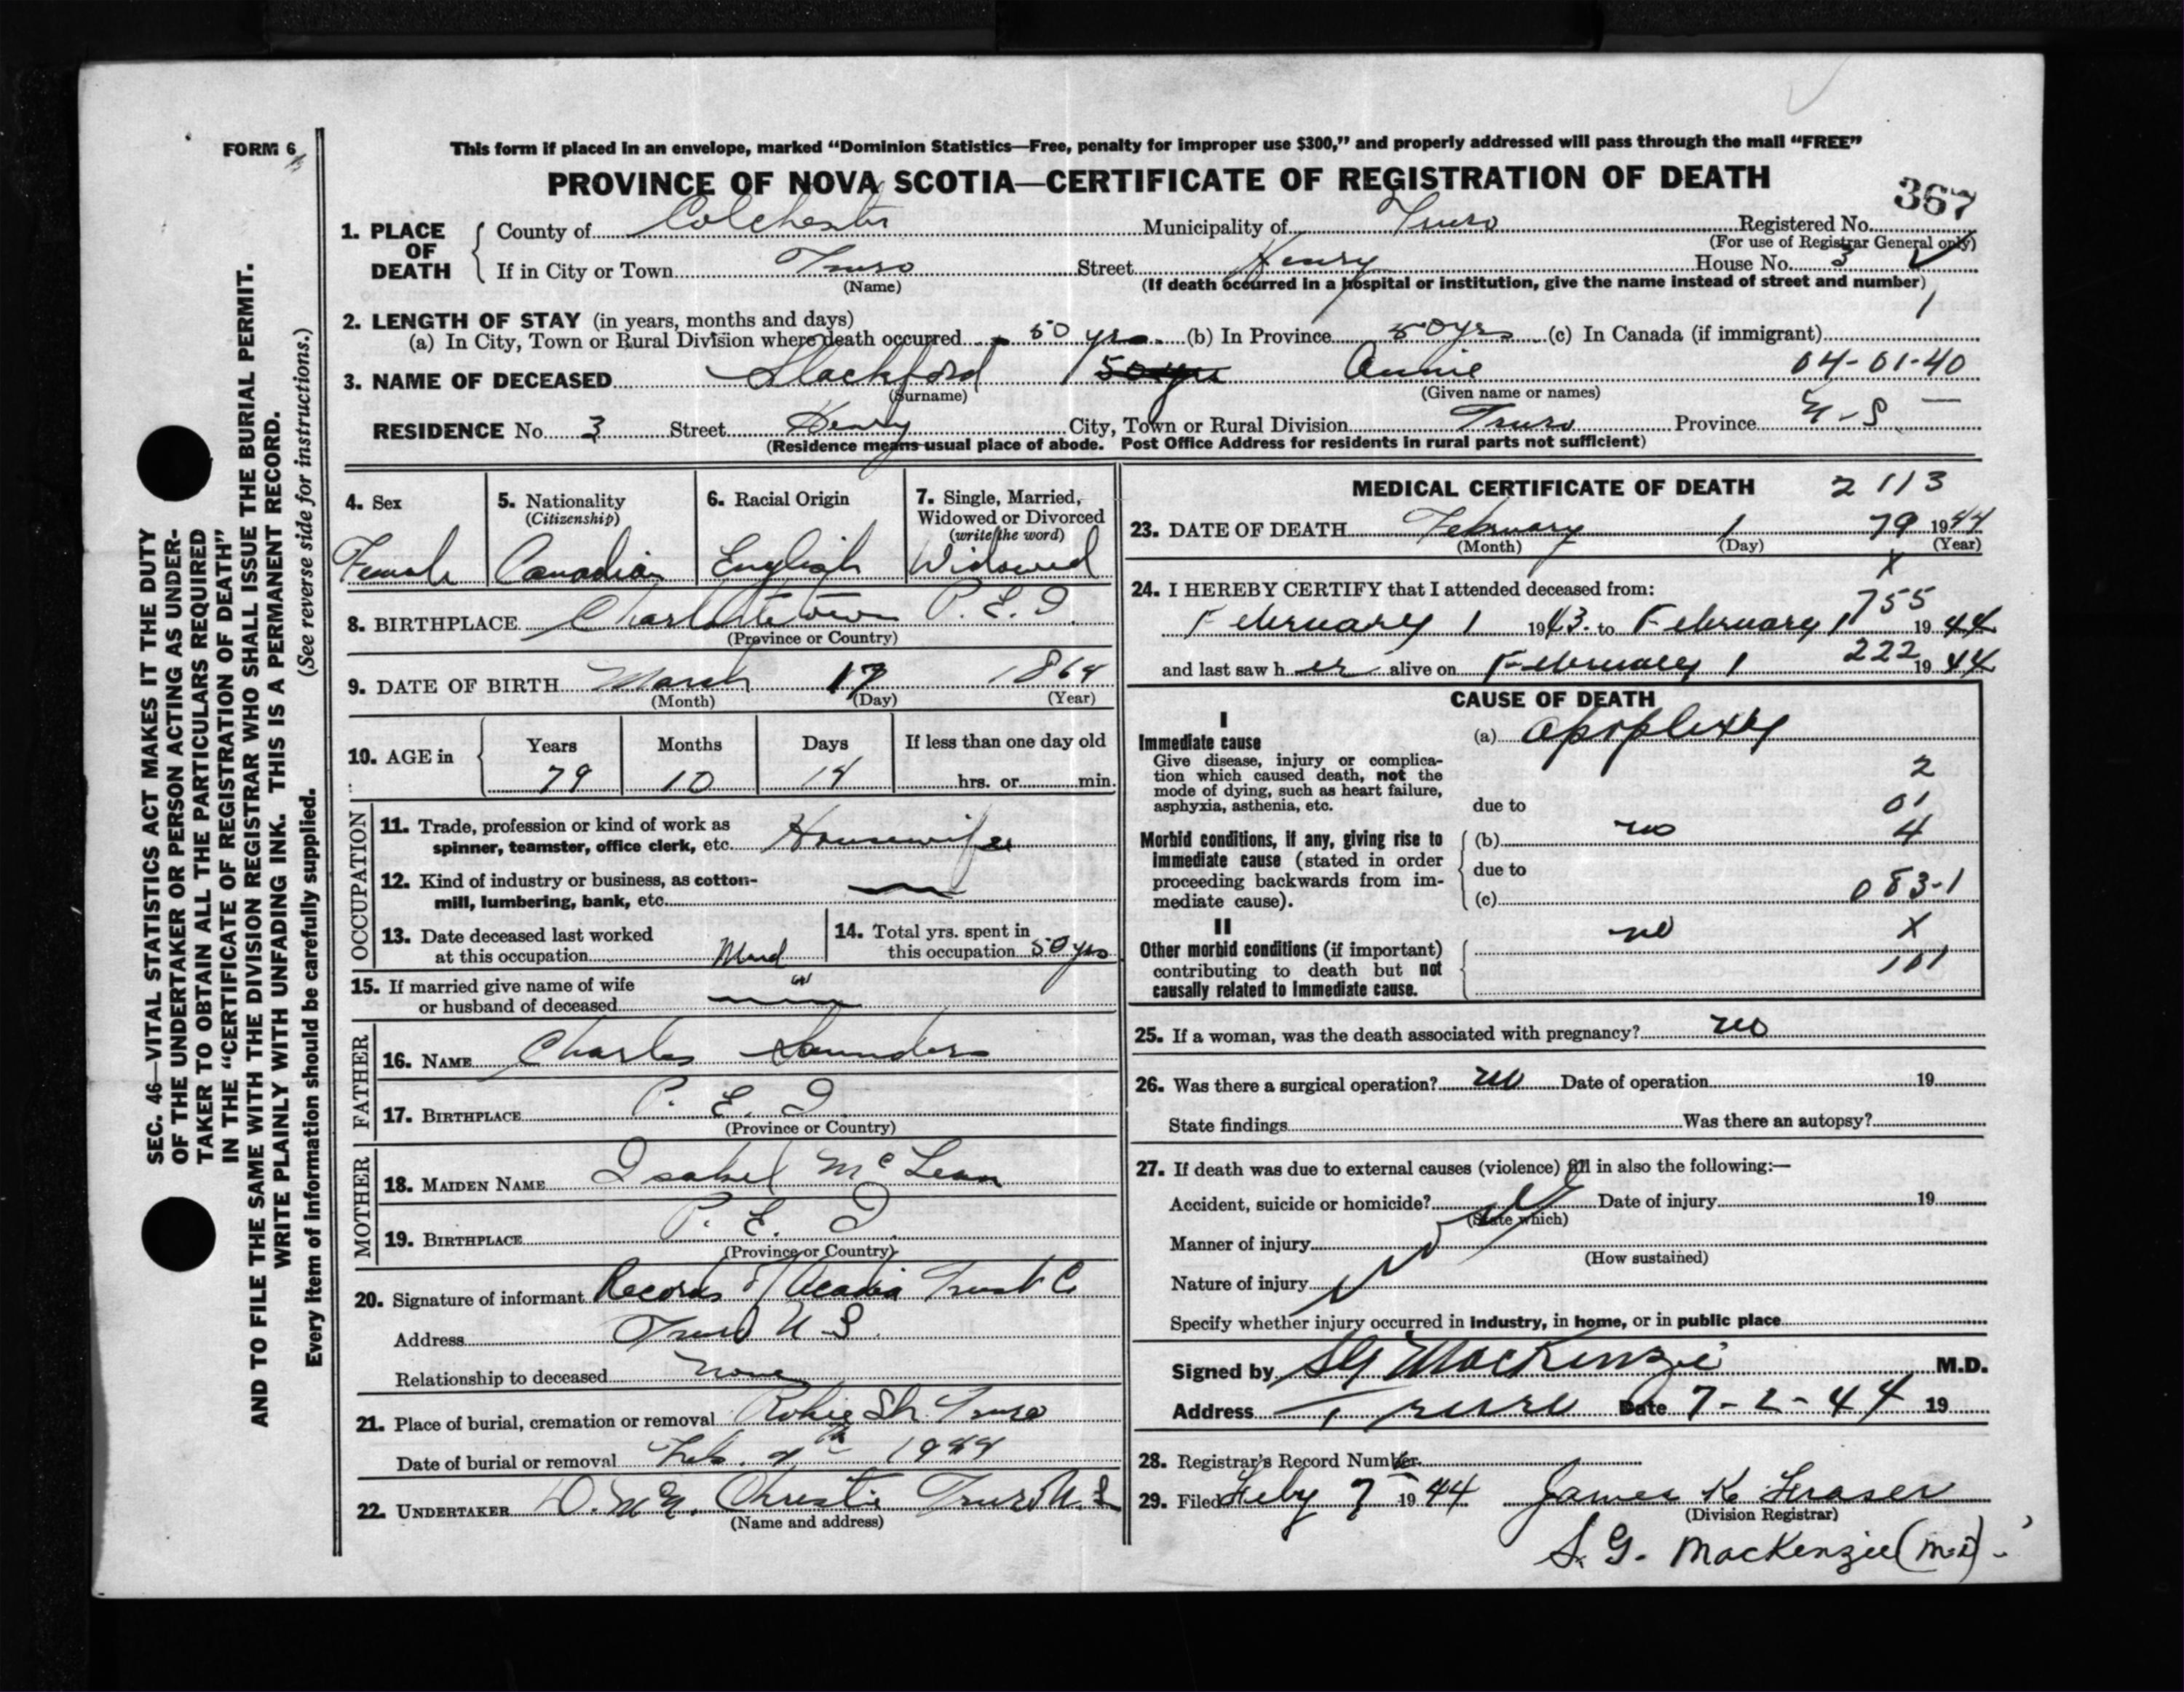 FORM 6
This form if placed in an envelope, marked “Dominion Statistics—Free, penalty for improper use $300,” and properly addressed will pass through the mail “FREE”
PROVINCE OF NOVA SCOTIA—CERTIFICATE OF REGISTRATION OF DEATH
367
1. PLACE OF DEATH
County of Colchester Municipality of Truro Registered No.
(For use of Registrar General only)
If in City or Town Truro Street Henry House No. 3
(Name) (If death occurred in a hospital or institution, give the name instead of street and number)
2. LENGTH OF STAY (in years, months and days)
(a) In City, Town or Rural Division where death occurred 50 yrs. (b) In Province 50 yrs (c) In Canada (if immigrant)
3. NAME OF DECEASED Slackford 50 yrs Annie 04-01-40
(Surname) (Given name or names)
RESIDENCE No. 3 Street Henry City, Town or Rural Division Truro Province N-S
(Residence means usual place of abode. Post Office Address for residents in rural parts not sufficient)
4. Sex
Female
5. Nationality
(Citizenship)
Canadian
6. Racial Origin
English
7. Single, Married, Widowed or Divorced
(write the word)
Widowed
8. BIRTHPLACE Charlottetown P.E.I.
(Province or Country)
9. DATE OF BIRTH March 17 1864
(Month) (Day) (Year)
10. AGE in Years Months Days If less than one day old
79 10 14 hrs. or min.
OCCUPATION
11. Trade, profession or kind of work as
spinner, teamster, office clerk, etc. Housewife
12. Kind of industry or business, as cotton-
mill, lumbering, bank, etc.
13. Date deceased last worked
at this occupation
14. Total yrs. spent in
this occupation 50 yrs
15. If married give name of wife
or husband of deceased
FATHER
16. NAME Charles Saunders
17. BIRTHPLACE P. E. I.
(Province or Country)
MOTHER
18. MAIDEN NAME Isabel McLean
19. BIRTHPLACE P. E. I.
(Province or Country)
20. Signature of informant Records of Acadia Trust C
Address Truro N S.
Relationship to deceased none
21. Place of burial, cremation or removal Robie St. Truro
Date of burial or removal Feb. 4th 1944
22. UNDERTAKER Christie Truro N. S
(Name and address)
MEDICAL CERTIFICATE OF DEATH 2113
23. DATE OF DEATH February 1 79 1944
(Month) (Day) (Year)
X
24. I HEREBY CERTIFY that I attended deceased from:
755
February 1 1943. to February 1 1944
222
and last saw her alive on February 1 1944
CAUSE OF DEATH
I
Immediate cause
(a) apoplexy
Give disease, injury or complica-
tion which caused death, not the
mode of dying, such as heart failure,
asphyxia, asthenia, etc.
due to
2
01
Morbid conditions, if any, giving rise to
immediate cause (stated in order
proceeding backwards from im-
mediate cause).
(b) no 4
due to
(c) 083-1
II
Other morbid conditions (if important)
contributing to death but not
causally related to immediate cause.
no X
101
25. If a woman, was the death associated with pregnancy? no
26. Was there a surgical operation? no Date of operation 19
State findings Was there an autopsy?
27. If death was due to external causes (violence) fill in also the following:—
Accident, suicide or homicide? Date of injury 19
(State which)
Manner of injury
(How sustained)
Nature of injury
Specify whether injury occurred in industry, in home, or in public place
Signed by SG MacKenzie M.D.
Address Truro Date 7-2-44 19
28. Registrar's Record Number
29. Filed Feby 7 1944 James K. Fraser
(Division Registrar)
S. G. MacKenzie (M.D.)
SEC. 46—VITAL STATISTICS ACT MAKES IT THE DUTY
OF THE UNDERTAKER OR PERSON ACTING AS UNDER-
TAKER TO OBTAIN ALL THE PARTICULARS REQUIRED
IN THE “CERTIFICATE OF REGISTRATION OF DEATH”
AND TO FILE THE SAME WITH THE DIVISION REGISTRAR WHO SHALL ISSUE THE BURIAL PERMIT.
WRITE PLAINLY WITH UNFADING INK. THIS IS A PERMANENT RECORD.
Every item of information should be carefully supplied. (See reverse side for instructions.)